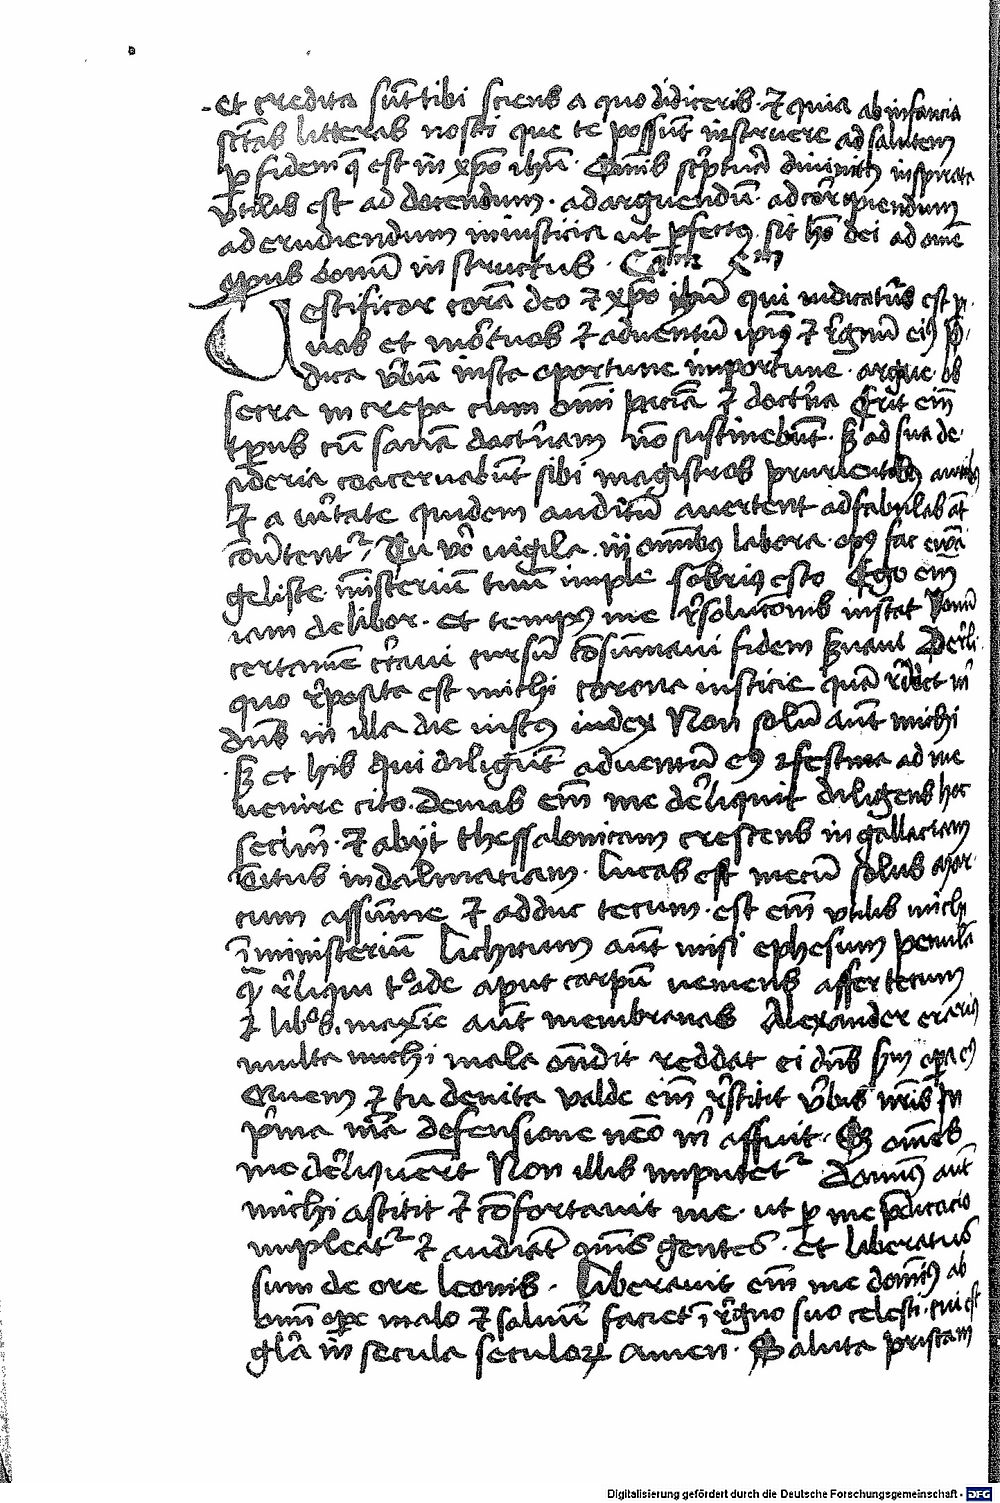 et credita sūt tibi sciens a quo didiceris · et quia ab infancia
sctas litteras nosti que te possūt instruere ad salutem
p fidem q̄ est in xpo ihū · Omīs scptura divinitus inspirata
utilis est ad docendum · ad arguendū · ad corripiendum
ad erudiendum in iusticia ut pfectus sit hō dei ad omē
opus bonū instructus ·
Testificor corā deo et xpo ihū qui iudicaturus est
vivos et mortuos et adventū ipius et regnū eius p
dica vbū insta oportune importune · argue · ob
secra increpa cum omī paciā et doctrina Erit em̄
tpus cū sanā doctrinam nō sustinebūt · sz ad sua de
sideria coacervabūt sibi magistros prurientes auribus
et a vitate quidem auditū avertent ad fabulas āt
cōvertent Tu vo vigila in omibus labora · opus fac evā
geliste mīsteriū tuū imple sobrius esto Ego em̄
iam delibor · et tempus me resolucōnis instat bonū
certamē certavi cursū cōsūmavi fidem servavi De reli
quo reposita est michi corona iusticie quā reddet m
dns in illa die iustus iudex Non solū aūt michi
sz et his qui diligūt adventū eius festina ad me
venire cito · Demas em̄ me dereliquit diligens hoc
seclm · et abijt thessalonicam crescens in gallaciam
titus in dalmatiam · Lucas est mecū solus mar
cum assūme et adduc tecum · est em̄ utilis michi
ī ministeriū Tichicum aūt misi ephesum penulā
quā reliqui troade aput carpū veniens affer tecum
et libros · maxīe aūt membranas Alexander erarius
multa michi mala ondit reddat ei dns sm opa eius
Quem et tu devita valde em̄ restitit vbis nris In
prima mea defensione nemo m affuit · Sz omnes
me dereliquerūt Non illis imputet Dominus aūt
michi astitit et cōfortavit me · ut p me pdicacio
impleat et audiāt omnes gentes · Et liberatus
sum de ore leonis · Liberavit em̄ me dominus ab
omī ope malo et salvū faciet ī regno suo celesti · cui est
gla in secula seculorz amen · Saluta priscam